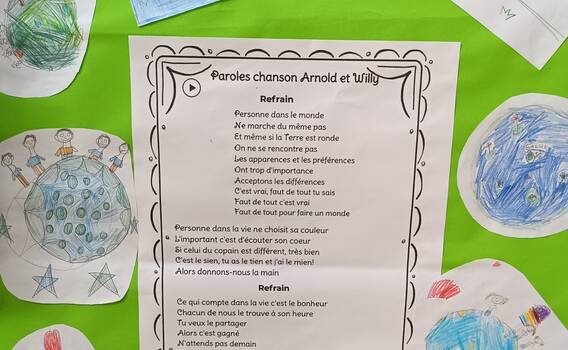 Paroles chanson Arnold et Willy
Refrain
Personne dans le monde
Ne marche du même pas
Et même si la Terre est ronde
On ne se rencontre pas
Les apparences et les préférences
Ont trop d'importance
Acceptons les différences
C'est vrai, faut de tout tu sais
Faut de tout c'est vrai
Faut de tout pour faire un monde
Personne dans la vie ne choisit sa couleur
L'important c'est d'écouter son coeur
Si celui du copain est différent, très bien
C'est le sien, tu as le tien et j'ai le mien!
Alors donnons-nous la main
Refrain
Ce qui compte dans la vie c'est le bonheur
Chacun de nous le trouve à son heure
Tu veux le partager
Alors c'est gagné
N'attends pas demain